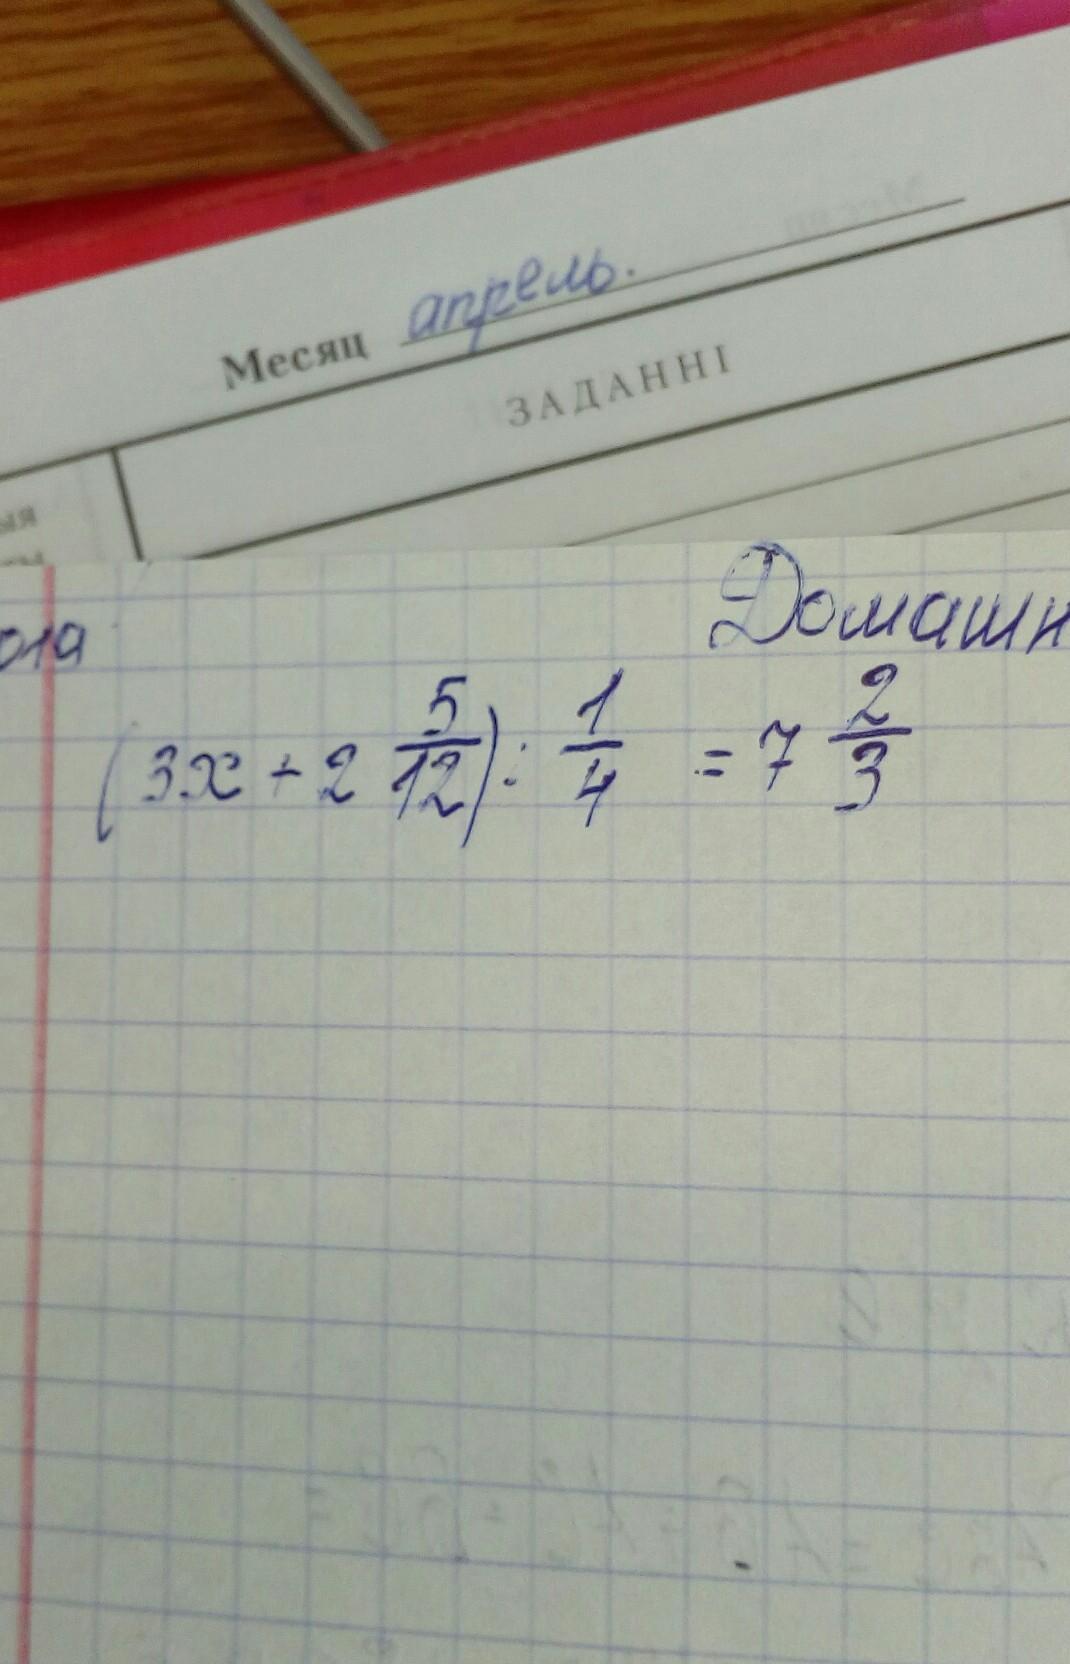 Месяц апрель.
ЗАДАННІ
Домашн
(3x + 2 5/12) : 1/4 = 7 2/3